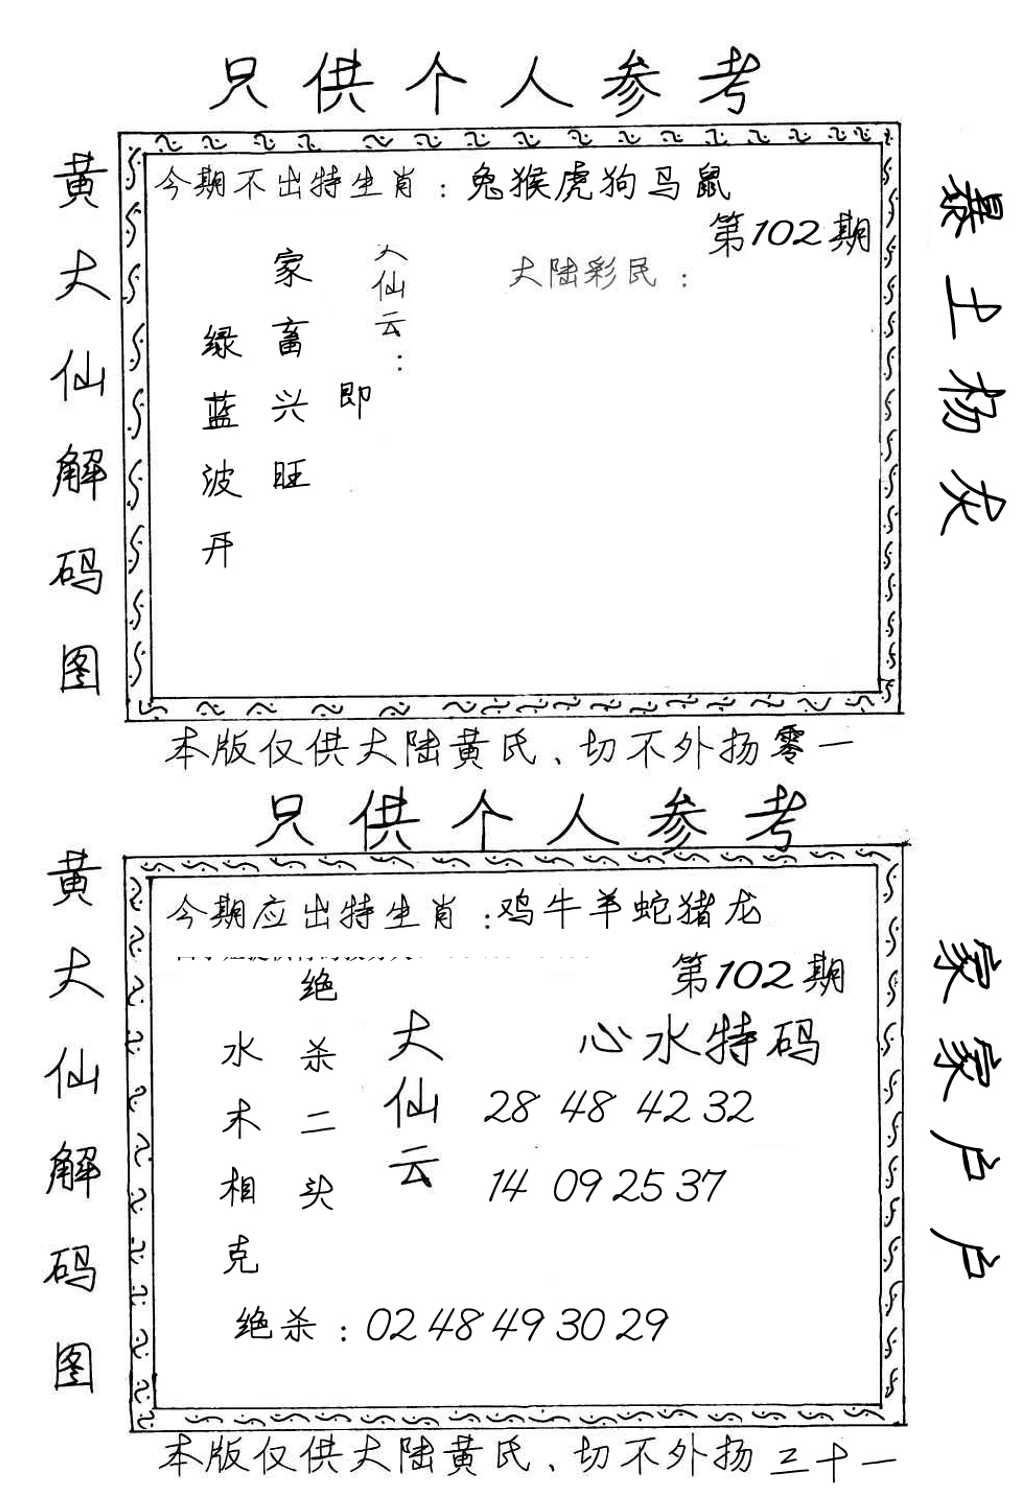 只供个人参考
黄大仙解码图
今期不出特生肖：兔猴虎狗马鼠
第102期
大仙云：
即
家畜兴旺
绿蓝波开
大陆彩民：
暴土杨灰
本版仅供大陆黄氏、切不外扬零一
只供个人参考
黄大仙解码图
今期应出特生肖：鸡牛羊蛇猪龙
第102期
大仙云
绝杀二头
水木相克
心水特码
28 48 42 32
14 09 25 37
绝杀：02 48 49 30 29
家家户户
本版仅供大陆黄氏、切不外扬三十一